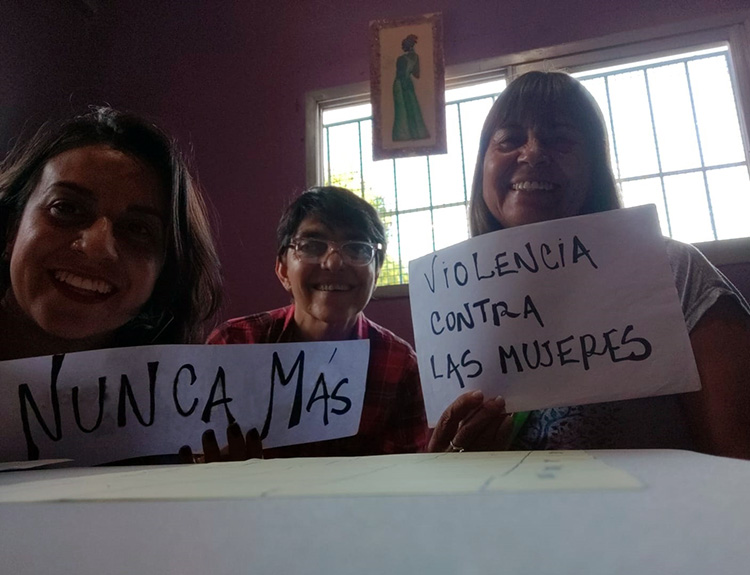 NUNCA MÁS
VIOLENCIA
CONTRA
LAS MUJERES